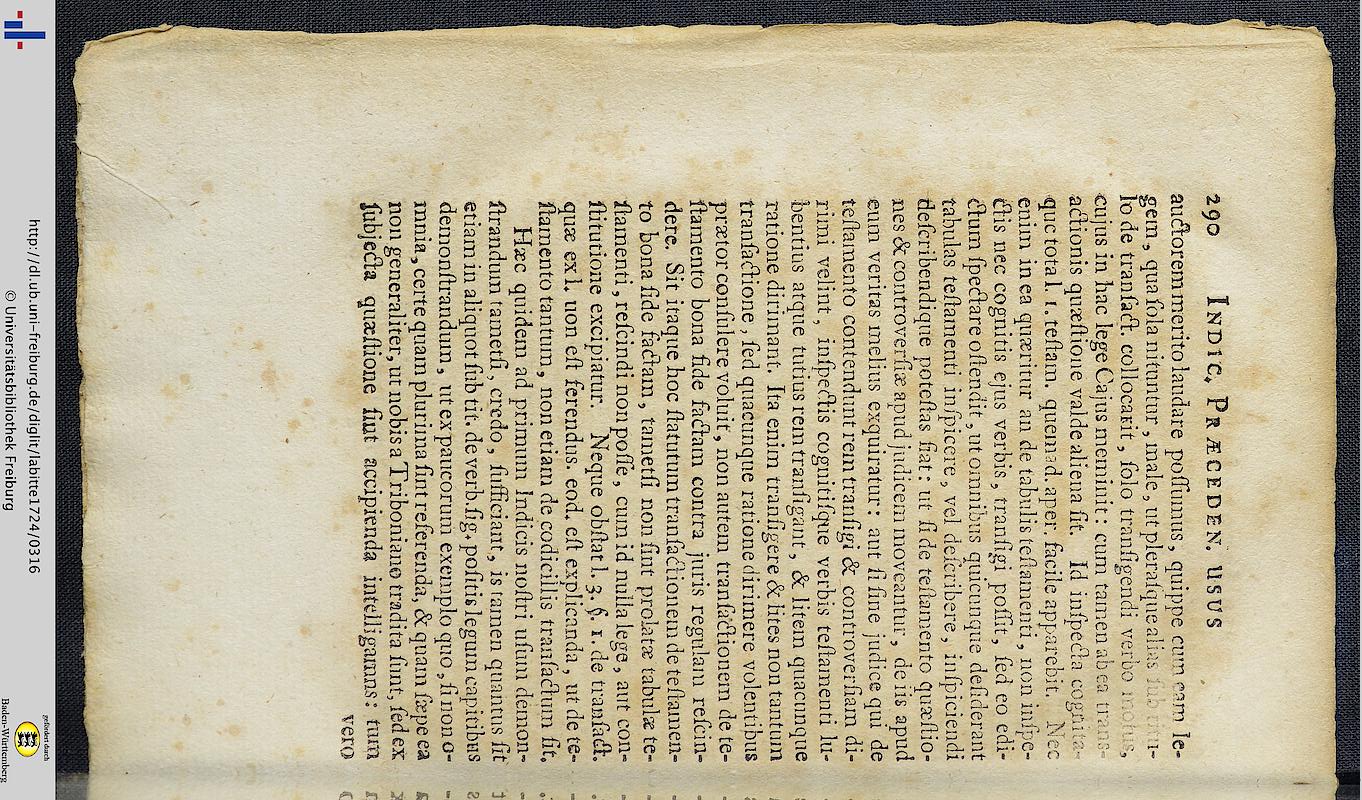 290 INDIC. PRÆCEDEN. USUS
auctorem merito laudare possumus, quippe cum eam le-
gem, qua sola nituntur, male, ut plerasque alias sub titu-
lo de transact. collocarit, solo transigendi verbo motus,
cujus in hac lege Cajus meminit: cum tamen ab ea trans-
actionis quæstione valde aliena sit. Id inspecta cognita-
que tota l. 1. testam. quemad. aper. facile apparebit. Nec
enim in ea quæritur an de tabulis testamenti, non inspe-
ctis nec cognitis ejus verbis, transigi possit, sed eo edi-
ctum spectare ostendit, ut omnibus quicunque desiderant
tabulas testamenti inspicere, vel describere, inspiciendi
describendique potestas fiat: ut si de testamento quæstio-
nes & controversiæ apud judicem moveantur, de iis apud
eum veritas melius exquiratur: aut si sine judice qui de
testamento contendunt rem transigi & controversiam di-
rimi velint, inspectis cognitisque verbis testamenti lu-
bentius atque tutius rem transigant, & litem quacunque
ratione dirimant. Ita enim transigere & lites non tantum
transactione, sed quacunque ratione dirimere volentibus
prætor consulere voluit, non autem transactionem de te-
stamento bona fide factam contra juris regulam rescin-
dere. Sit itaque hoc statutum transactionem de testamen-
to bona fide factam, tametsi non sint prolatæ tabulæ te-
stamenti, rescindi non posse, cum id nulla lege, aut con-
stitutione excipiatur. Neque obstat l. 3. §. 1. de transact.
quæ ex l. non est ferendus. eod. est explicanda, ut de te-
stamento tantum, non etiam de codicillis transactum sit.
Hæc quidem ad primum Indicis nostri usum demon-
strandum tametsi, credo, sufficiant, is tamen quantus sit
etiam in aliquot sub tit. de verb. sig. positis legum capitibus
demonstrandum, ut ex paucorum exemplo quo, si non o-
mnia, certe quam plurima sint referenda, & quam sæpe ea
non generaliter, ut nobis a Triboniano tradita sunt, sed ex
subjecta quæstione sint accipienda intelligamus: tum
vero
http://dl.ub.uni-freiburg.de/diglit/labitte1724/0316
© Universitätsbibliothek Freiburg
gefördert durch
Baden-Württemberg